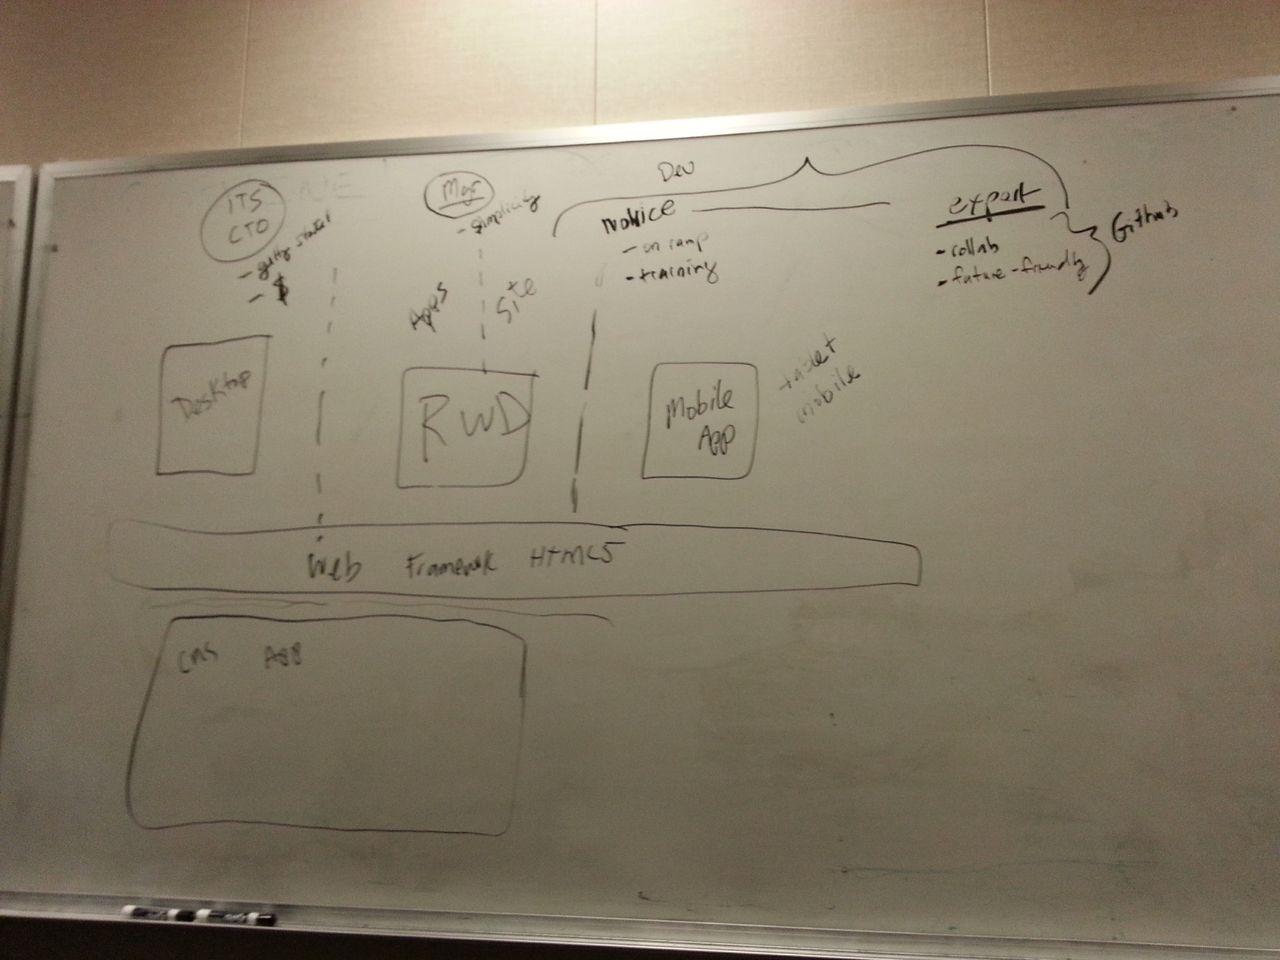 ITS
CTO
- $
Mgr
- simplicity
Dev
Novice
- on ramp
- training
expert
- collab
- future-friendly
Github
Apps
Site
Desktop
RWD
Mobile
App
tablet
mobile
Web Framework HTML5
CMS App